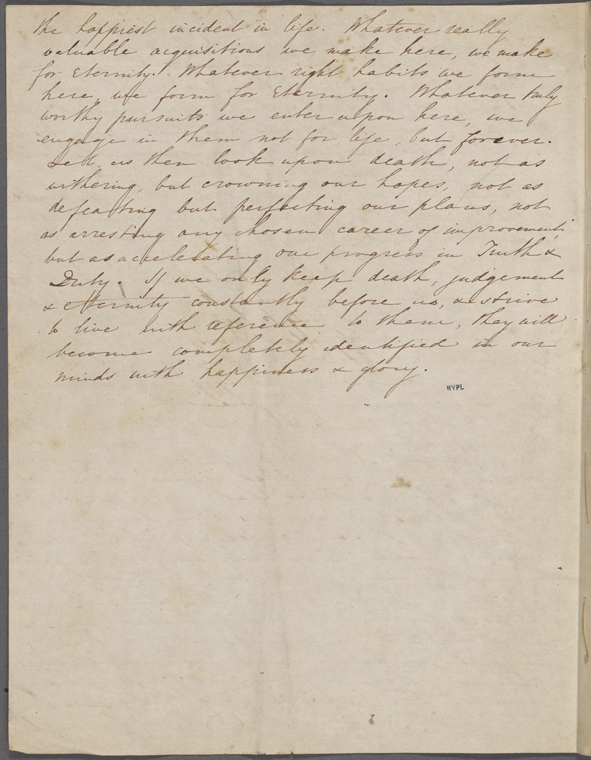 the happiest incident in life. Whatever really
valuable acquisitions we make here, we make
for Eternity. Whatever right habits we form
here, we form for Eternity. Whatever truly
worthy pursuits we enter upon here, we
engage in them not for life, but forever.
Let us then look upon death, not as
withering, but crowning our hopes, not as
defeating but perfecting our plans, not
as arresting any chosen career of improvement,
but as accelerating our progress in Truth &
Duty. If we only keep death, judgement
& eternity constantly before us, & strive
to live with reference to them, they will
become completely identified in our
minds with happiness & glory.
NYPL